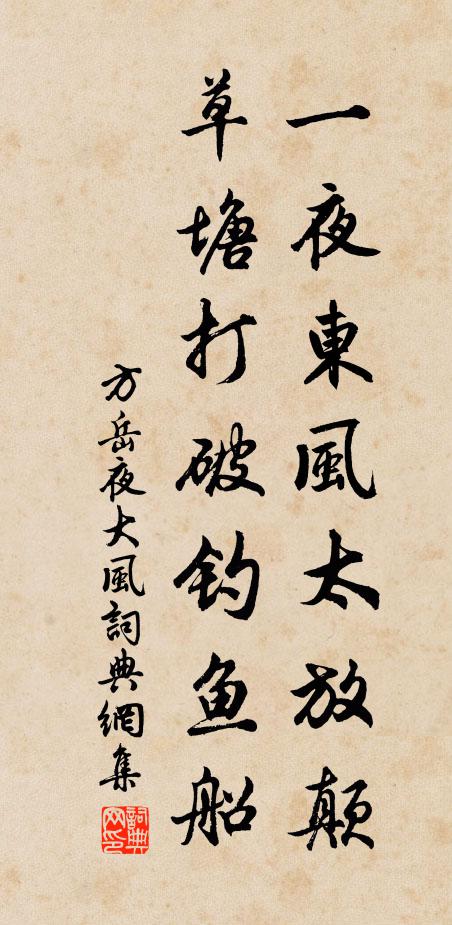 一夜東風太放顛
草塘打破钓鱼船
方岳夜大風詞典網集
詞典网印